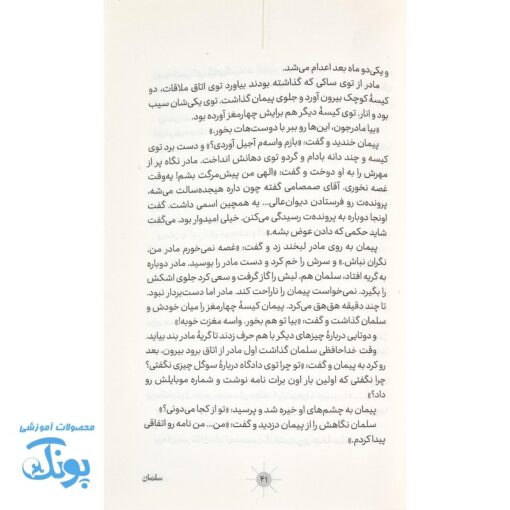 و یکی‌دو ماه بعد اعدام می‌شد.
مادر از توی ساکی که گذاشته بودند بیاورد توی اتاق ملاقات، دو
کیسهٔ کوچک بیرون آورد و جلوی پیمان گذاشت. توی یکی‌شان سیب
بود و انار. توی کیسهٔ دیگر هم برایش چهارمغز آورده بود.
«بیا مادرجون، این‌ها رو ببر با دوست‌هات بخور.»
پیمان خندید و گفت: «بازم واسه‌م آجیل آوردی؟» و دست برد توی
کیسه و چند دانه بادام و گردو توی دهانش انداخت. مادر نگاه پر از
مهرش را به او دوخت و گفت: «الهی من پیش‌مرگت بشم! یه‌وقت
غصه نخوری. آقای صمصامی گفته چون داره هیجده‌سالت می‌شه،
پرونده‌ت رو فرستادن دیوان‌عالی... یه همچین اسمی داشت. گفت
اونجا دوباره به پرونده‌ت رسیدگی می‌کنن. خیلی امیدوار بود. می‌گفت
شاید حکمی که دادن عوض بشه.»
پیمان به روی مادر لبخند زد و گفت: «غصه نمی‌خورم مادر من.
نگران نباش.» و سرش را خم کرد و دست مادر را بوسید. مادر دوباره
به گریه افتاد، سلمان هم. لبش را گاز گرفت و سعی کرد جلوی اشکش
را بگیرد. نمی‌خواست پیمان را ناراحت کند. مادر اما دست‌بردار نبود.
تا چند دقیقه هق‌هق می‌کرد. پیمان کیسهٔ چهارمغز را میان خودش و
سلمان گذاشت و گفت: «بیا تو هم بخور. واسه مغزت خوبه!»
و دوتایی دربارهٔ چیزهای دیگر با هم حرف زدند تا گریهٔ مادر بند بیاید.
وقت خداحافظی سلمان گذاشت اول مادر از اتاق برود بیرون، بعد
رو کرد به پیمان و گفت: «تو چرا توی دادگاه دربارهٔ سوگل چیزی نگفتی؟
چرا نگفتی که اولین بار اون برات نامه نوشت و شماره موبایلش رو
داد؟»
پیمان به چشم‌های او خیره شد و پرسید: «تو از کجا می‌دونی؟»
سلمان نگاهش را از پیمان دزدید و گفت: «من... من نامه رو اتفاقی
پیدا کردم.»
۴۱
سلمان
محصولات آموزشی
پونک